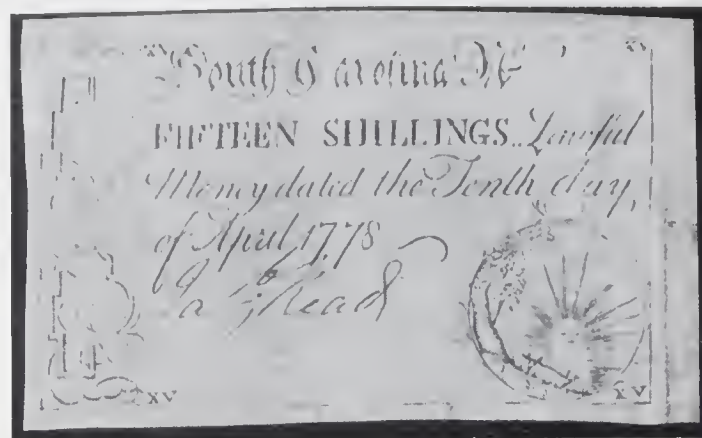 XV XV
South Carolina No
FIFTEEN SHILLINGS. Lawful
Money dated the Tenth day,
of April, 1778
XV XV